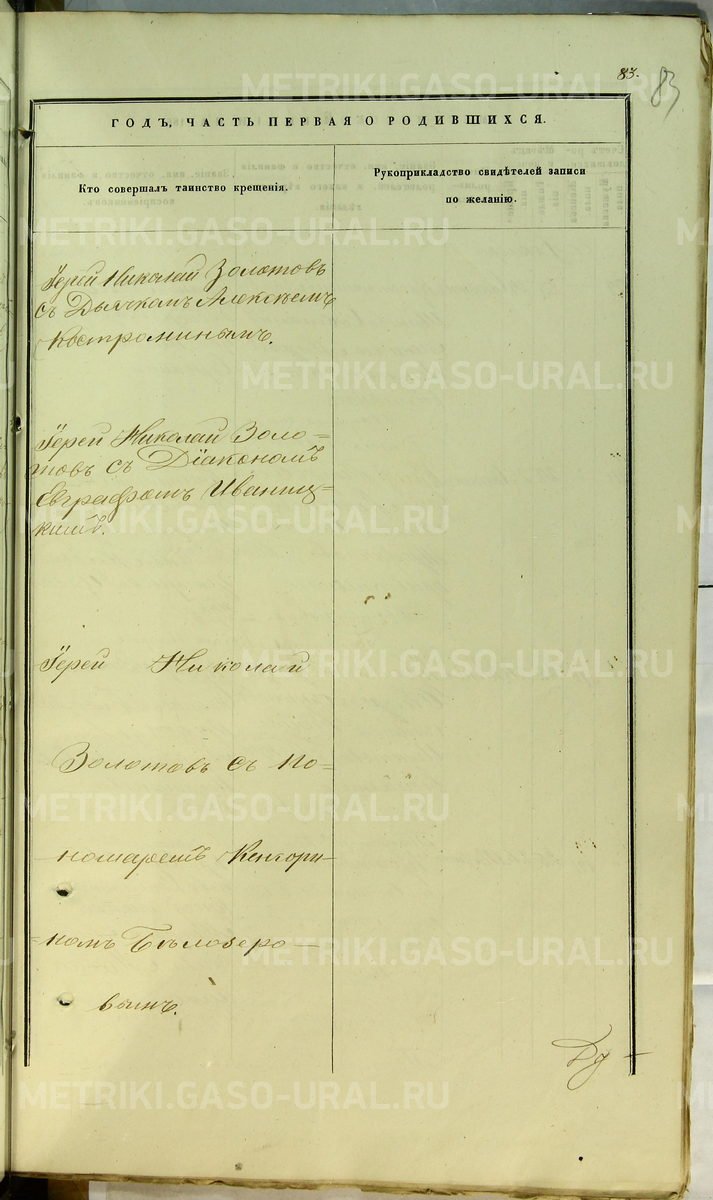 83.
83
ГОДЪ, ЧАСТЬ ПЕРВАЯ О РОДИВШИХСЯ.
Кто совершалъ таинство крещенія.
Рукоприкладство свидѣтелей записи
по желанію.
Іерей Николай Золотовъ
съ Дьячкомъ Алексѣемъ
Костроминымъ.
Іерей Николай Золо=
товъ съ Діакономъ
Евграфомъ Иваниц=
кимъ.
Іерей Николай
Золотовъ съ По=
номаремъ Кенсори=
номъ Бѣлозеро—
вымъ.
METRIKI.GASO-URAL.RU